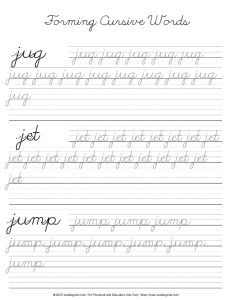 Forming Cursive Words
jug jug jug jug jug jug
jug jug jug jug jug jug jug jug
jug
jet jet jet jet jet jet jet jet
jet jet jet jet jet jet jet jet jet jet
jet
jump jump jump jump
jump jump jump jump jump
jump